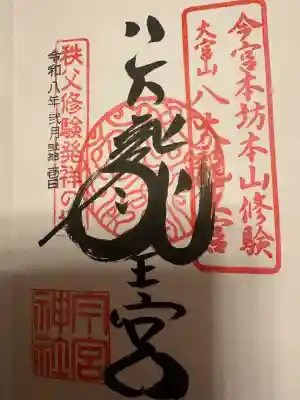 今宮本坊本山修験
大宮山 八大龍王宮
八大龍王宮
秩父修験発祥の地
令和八年弐月
今宮神社